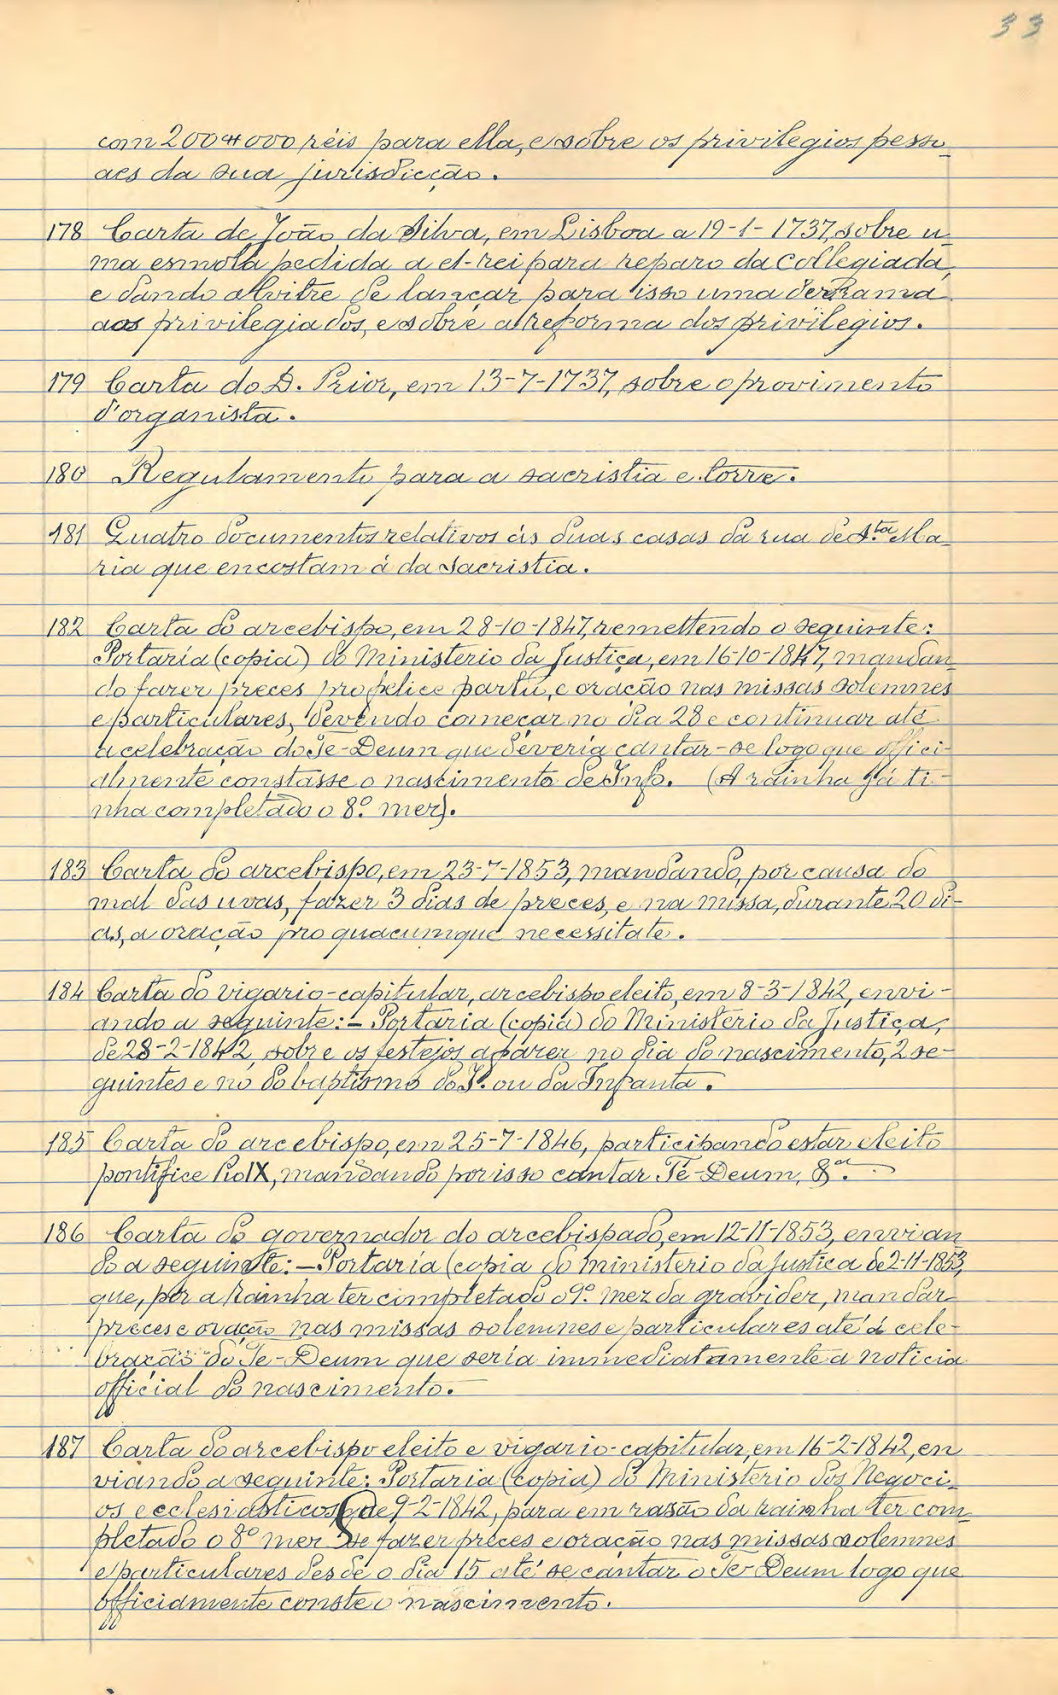 33
com 200#000 réis para ella, e sobre os privilegios pesso-
aes da sua jurisdicção.
178 Carta de João da Silva, em Lisboa a 19-1-1737, sobre u-
ma esmola pedida a el-rei para reparo da Collegiada,
e dando alvitre de lançar para isso uma derrama
aos privilegiados, e sobre a reforma dos privilegios.
179 Carta do D. Prior, em 13-7-1737, sobre o provimento
d'organista.
180 Regulamento para a sacristia e torre.
181 Quatro documentos relativos ás duas casas da rua de S.ta Ma-
ria que encostam á da Sacristia.
182 Carta do arcebispo, em 28-10-1847, remettendo o seguinte:
Portaria (copia) do Ministerio da Justiça, em 16-10-1847, mandan-
do fazer preces pro felice partu, e oração nas missas solemnes
e particulares, devendo começar no dia 28 e continuar até
a celebração do Te-Deum que deveria cantar-se logo que offici-
almente constasse o nascimento de Inf. (A rainha já ti-
nha completado o 8.º mez).
183 Carta do arcebispo, em 23-7-1853, mandando, por causa do
mal das uvas, fazer 3 dias de preces, e na missa, durante 20 di-
as, a oração pro quacumque necessitate.
184 Carta do vigario-capitular, arcebispo eleito, em 8-3-1842, envi-
ando a seguinte: - Portaria (copia) do Ministerio da Justiça,
de 28-2-1842, sobre os festejos a fazer no dia do nascimento, 2 se-
guintes e no do baptismo do I.º ou da Infanta.
185 Carta do arcebispo, em 25-7-1846, participando estar eleito
pontifice Pio IX, mandando por isso cantar Te-Deum, &.ª
186 Carta do governador do arcebispado, em 12-11-1853, envian
do a seguinte: - Portaria (copia do ministerio da Justica de 2-11-1853,
que, por a Rainha ter completado o 9.º mez da gravidez, mandar
preces e oração nas missas solemnes e particulares até á cele-
bração do Te-Deum que seria immediatamente a noticia
official do nascimento.
187 Carta do arcebispo eleito e vigario-capitular, em 16-2-1842, en
viando a seguinte: Portaria (copia) do Ministerio dos Negoci-
os ecclesiasticos de 9-2-1842, para em rasão da rainha ter com-
pletado o 8º mez se fazer preces e oração nas missas solemnes
e particulares desde o dia 15 até se cantar o Te-Deum logo que
officialmente conste o nascimento.